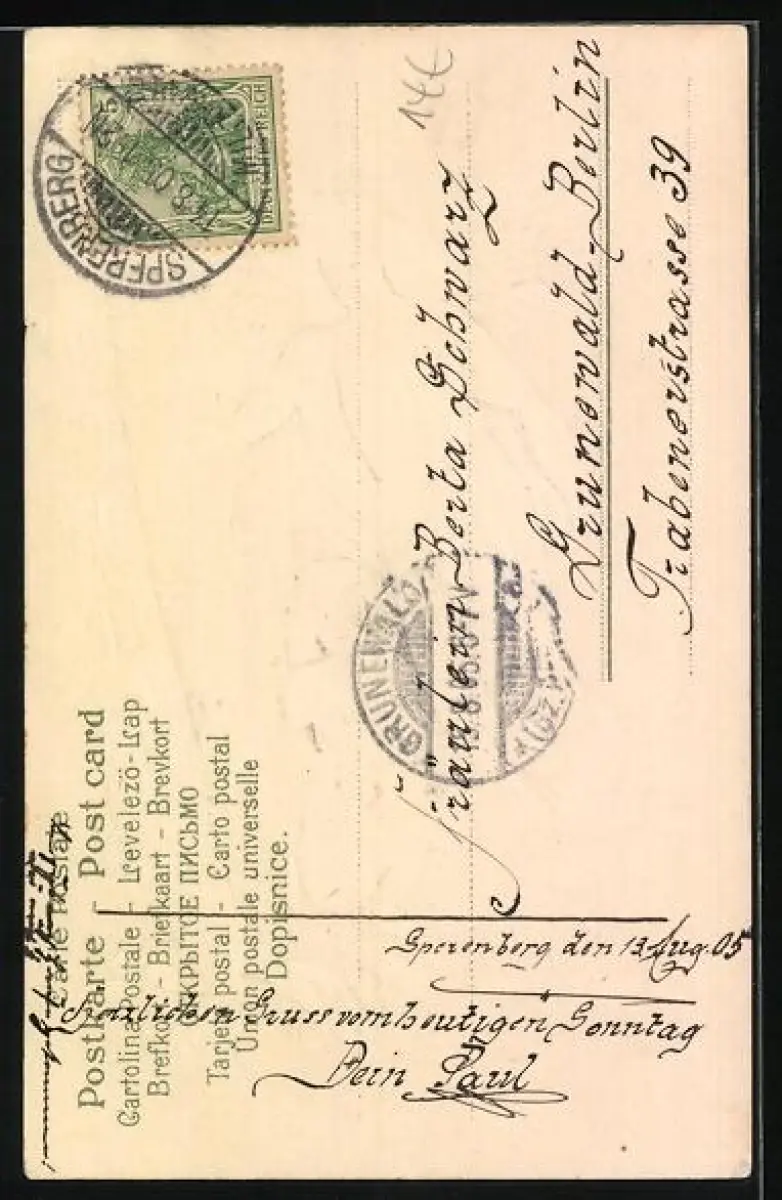 Carte Postale
Postkarte - Post card
Cartolina Postale - Levelezö-Lap
Brefkort - Briefkaart - Brevkort
ОТКРЫТОЕ ПИСЬМО
Tarjeta postal - Carto postal
Union postale universelle
Dopisnice.
SPERENBERG
DEUTSCHES REICH
14€
Fräulein Berta Schwarz
Grunewald-Berlin
Trabenerstrasse 39
GRUNEWALD
Sperenberg den 13 Aug. 05
Herzlichen Gruss vom heutigen Sonntag
Dein Paul